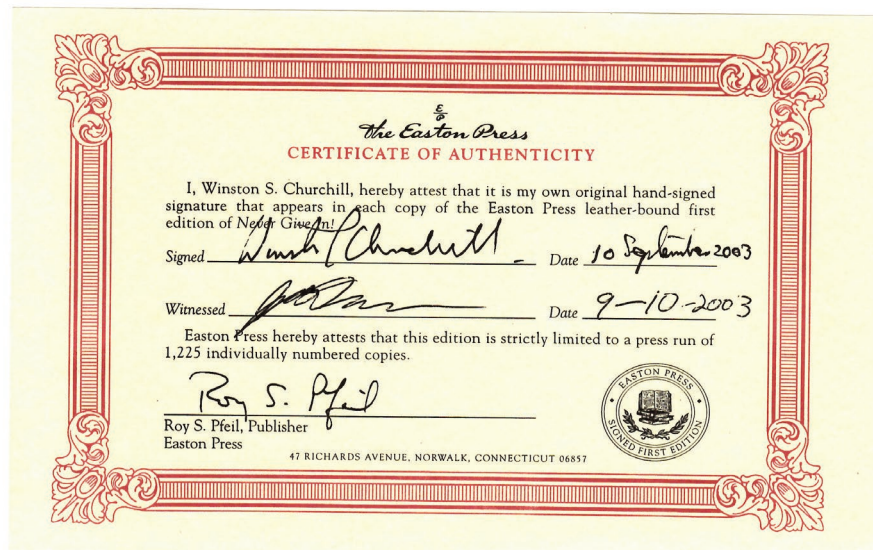 E
P
the Easton Press
CERTIFICATE OF AUTHENTICITY
I, Winston S. Churchill, hereby attest that it is my own original hand-signed
signature that appears in each copy of the Easton Press leather-bound first
edition of Never Give In!
Signed Winston S Churchill Date 10 September 2003
Witnessed Date 9-10-2003
Easton Press hereby attests that this edition is strictly limited to a press run of
1,225 individually numbered copies.
Roy S. Pfeil
Roy S. Pfeil, Publisher
Easton Press
EASTON PRESS
SIGNED FIRST EDITION
47 RICHARDS AVENUE, NORWALK, CONNECTICUT 06857